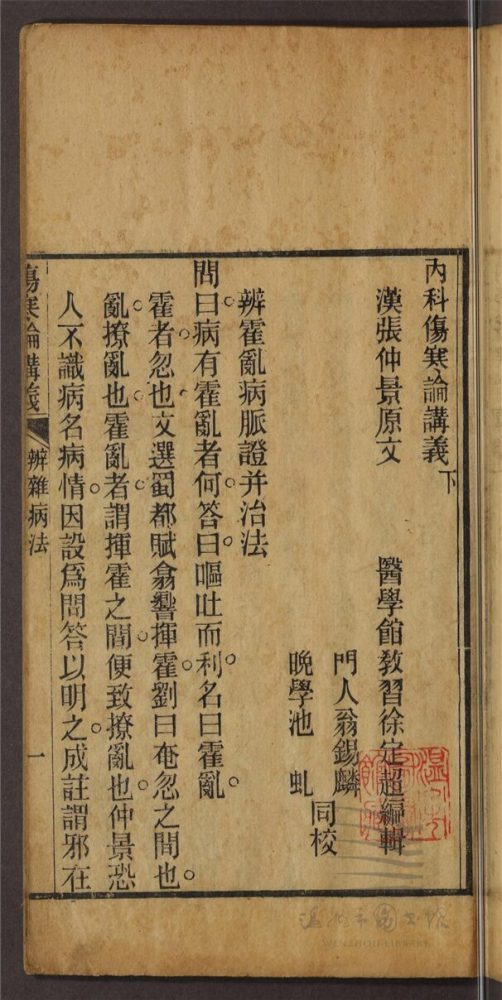 內科傷寒論講義 下
漢張仲景原文
醫學館教習徐定超編輯
門人翁錫麟
晚學池 虬
同校
辨霍亂病脈證并治法
問曰。病有霍亂者何。答曰。嘔吐而利。名曰霍亂。
霍者。忽也。文選蜀都賦翕響揮霍。劉曰。奄忽之間也。
亂。撩亂也。霍亂者。謂揮霍之間。便致撩亂也。仲景恐
人不識病名病情。因設爲問答以明之。成註謂邪在
傷寒論講義
辨雜病法
一
溫州市圖書館
WENZHOU LIBRARY